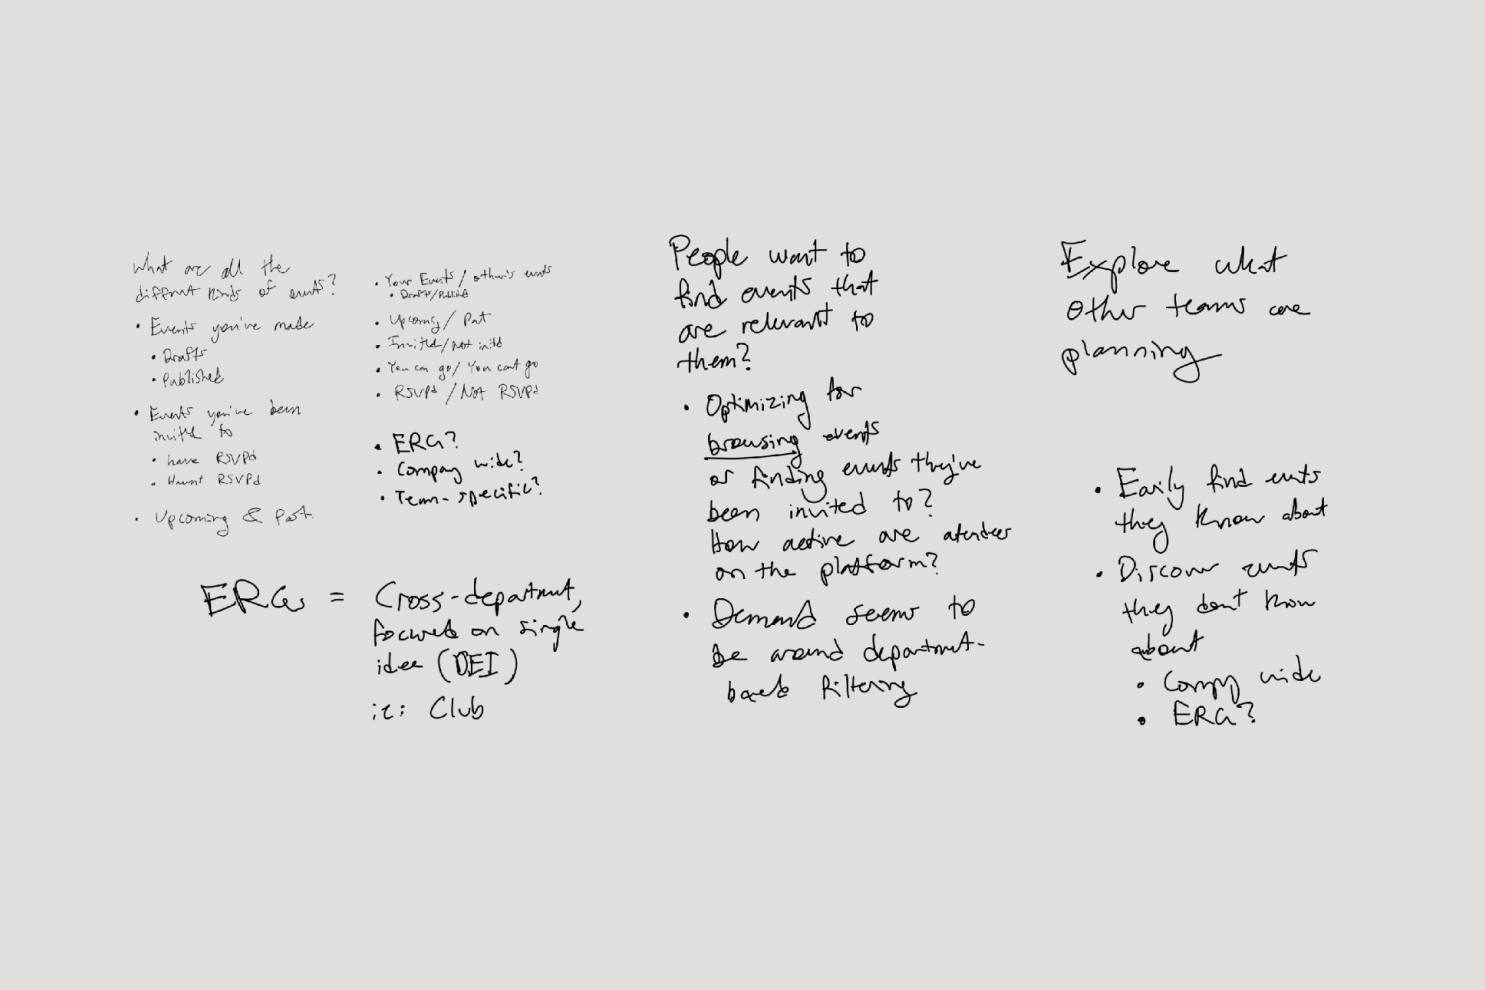 What are all the
different kinds of events?
• Events you've made
• Drafts
• Published
• Events you've been
invited to
• have RSVPd
• Havent RSVPd
• Upcoming & Past
• Your Events / other's events
• Drafts/Published
• Upcoming / Past
• Invited/not invited
• You can go/ You cant go
• RSVPd / Not RSVPd
• ERG?
• Company wide?
• Team-specific?
ERGs = Cross-department,
focused on single
idea (DEI)
i.e: Club
People want to
find events that
are relevant to
them?
• Optimizing for
browsing events
or finding events they've
been invited to?
How active are atendees
on the platform?
• Demand seems to
be around department-
based filtering
Explore what
other teams are
planning
• Easily find events
they know about
• Discover events
they dont know
about
• Company wide
• ERG?